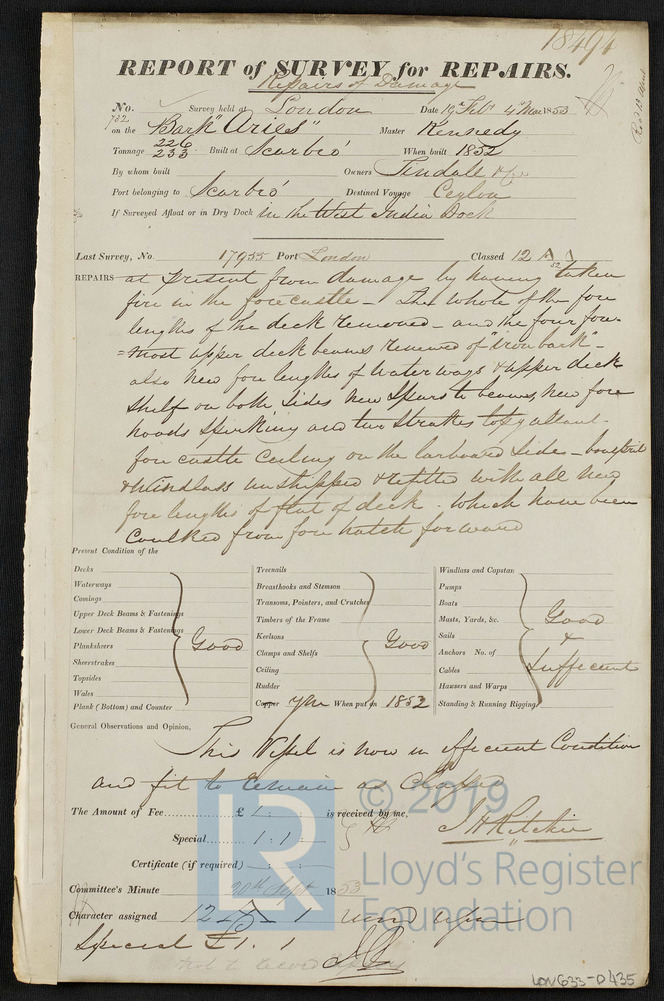 18494
REPORT of SURVEY for REPAIRS.
Repairs of Damage
No. 732 Survey held at London Date 19th Feb. 4th Mar 1853
on the Bark "Aries" Master Kennedy
Tonnage 226 233 Built at Scarbro' When built 1852
By whom built Owners Tindall & Co
Port belonging to Scarbro' Destined Voyage Ceylon
If Surveyed Afloat or in Dry Dock in the West India Dock
Last Survey, No. 17955 Port London Classed 12 A 1
52
REPAIRS at present from damage by having taken
fire in the forecastle - The whole of the fore
lengths of the deck removed - and the four fore-
=most upper deck beams renewed of "iron bark" -
also new fore lengths of waterways & upper deck
shelf on both sides new spurs to beams, new fore
hoods spirking and two strakes topgallant
fore castle ceiling on the larboard side - bowsprit
& Windlass unshipped & refitted with all new
fore lengths of flat of deck. which have been
caulked from fore hatch forward
Present Condition of the
Decks
Waterways
Comings
Upper Deck Beams & Fastenings
Lower Deck Beams & Fastenings
Planksheers
Sheerstrakes
Topsides
Wales
Plank (Bottom) and Counter
Good
Treenails
Breasthooks and Stemson
Transoms, Pointers, and Crutches
Timbers of the Frame
Keelsons
Clamps and Shelfs
Ceiling
Rudder
Copper YM When put on 1852
Good
Windlass and Capstan
Pumps
Boats
Masts, Yards, &c.
Sails
Anchors No. of
Cables
Hawsers and Warps
Standing & Running Rigging
Good
&
Sufficient
General Observations and Opinion,
This Vessel is now in efficient Condition
and fit to remain as Classed
The Amount of Fee £ 1 : : is received by me,
Special 1 : 1 : J H Ritchie
Certificate (if required)
Committee's Minute 20th Sept 1853
Character assigned 12 A 1
Special £1. 1
© 2019
LR
Lloyd's Register
Foundation
LON633-0435